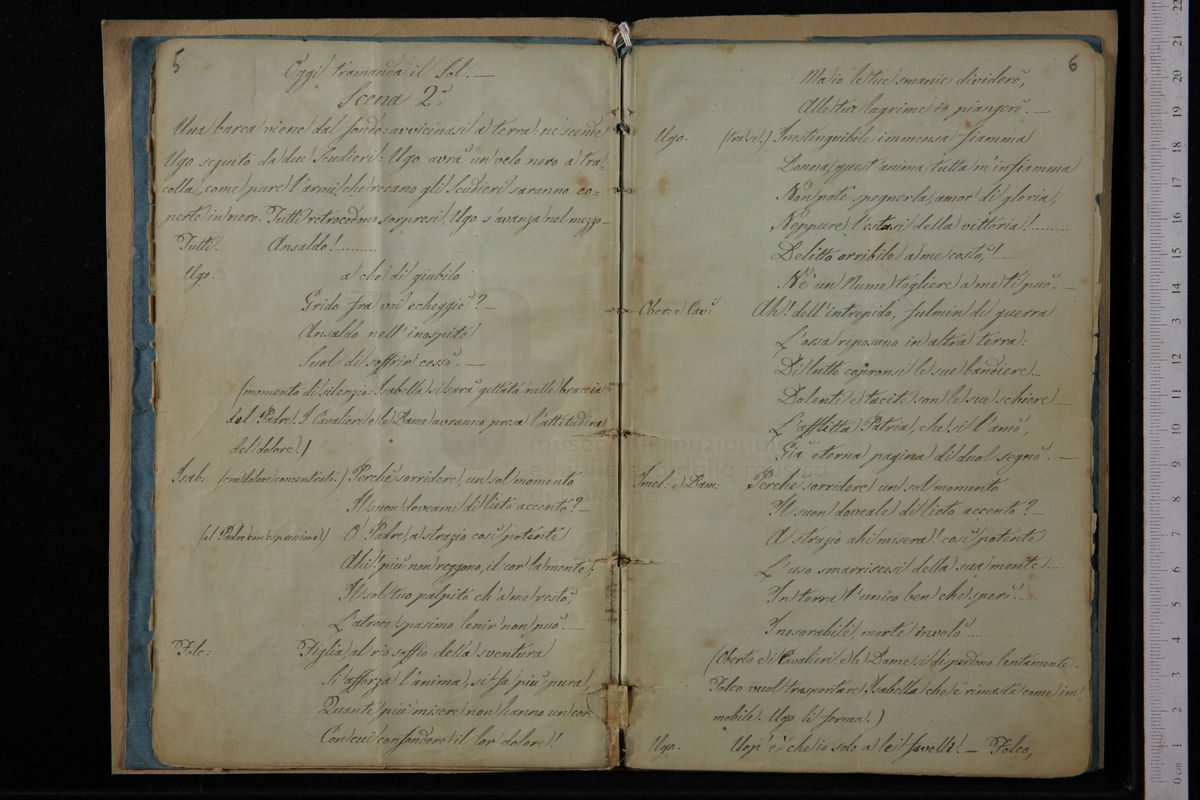 5
Oggi tramanda il Sol. —
Scena 2ª
Una barca viene dal fondo: avvicinasi a terra: ne scende
Ugo seguito da due Scudieri: Ugo avrà un velo nero a tra=
colla, come pure l'armi che recano gli Scudieri saranno co=
perte in nero. Tutti retrocedono sorpresi, Ugo s'avanza nel mezzo —
Tutti. Ansaldo!.........
Ugo. a che di giubilo
Grido fra voi echeggiò? —
Ansaldo nell'inospite
Suol di soffrir cessò. —
(momento di silenzio: Isabella si sarà gettata nelle braccia
del Padre. I Cavalieri e le Dame avranno presa l'attitudine
del dolore.)
Isab: (con dolore concentrato.) Perché sorridere un sol momento
Il suon doveami di lieto accento? —
(al Padre con espressione) O Padre, a strazio così potente
Ahi! più non reggono, il cor la mente;
Il sol tuo palpito ch'a me restò,
L'atroce spasimo lenir non può. —
Folc: Figlia, al rio soffio della sventura
Si afforza l'anima, si fa più pura,
Quanti più miseri non hanno un cor
Con cui confondere il lor dolore!
6
Ma io le tue smanie dividerò,
Alle tue lagrime io piangerò. —
Ugo. (tra se.) Inestinguibile immensa fiamma
Donna, quest'anima tutta m'infiamma
Non potè spegnerla, amor di gloria,
Neppure l'estasi della vittoria!........
Delitto orribile a me costò,!.....
Nè un Nume togliere a me ti può. —
Ober: e Cav: Ah! dell'intrepido, fulmin di guerra
L'ossa riposano in altra terra:
Di lutto copronsi le sue bandiere...
Dolenti e tacite son le sue schiere.....
L'afflitta Patria, che sì l'amò,
Già eterna pagina di duol segnò. —
Imel: e Dam: Perché sorridere un sol momento
Il suon doveale di lieto accento? —
A strazio ahi misera! così potente
L'uso smarriscesi della sua mente...
In terra l'unico ben che sperò.....
Inesorabile morte involò.....
(Oberto e i Cavalieri e le Dame si disperdono lentamente.
Folco vuol trasportare Isabella che è rimasta come im=
mobile. Ugo li ferma.)
Ugo. Uop'è che io solo a lei favelli! — Folco,
museo internazionale
e biblioteca della musica
di bologna